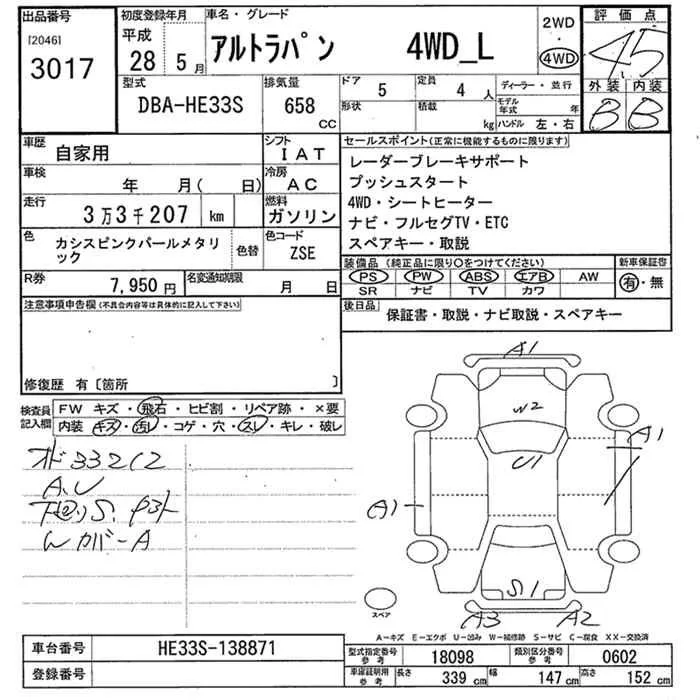 出品番号
[2046]
3017
初度登録年月
平成
28 5月
車名・グレード
アルトラパン 4WD_L
2WD
・
4WD
評価点
4.5
外装 内装
B B
型式
DBA-HE33S
排気量
658
CC
ドア
5
定員
4人
形状
積載
kg
ディーラー・並行
モデル年式 年
ハンドル 左・右
車歴
自家用
シフト
IAT
車検
年 月( 日)
冷房
AC
走行
3万3千207 km
燃料
ガソリン
色
カシスピンクパールメタリック
色替
色コード
ZSE
R券
7,950円
名変通知期限
月 日
セールスポイント(正常に機能するものに限ります)
レーダーブレーキサポート
プッシュスタート
4WD・シートヒーター
ナビ・フルセグTV・ETC
スペアキー・取説
装備品(純正品に限り○をつけてください)
PS PW ABS エアB AW
SR ナビ TV カワ
新車保証書
有・無
後日品
保証書・取説・ナビ取説・スペアキー
注意事項申告欄(不具合内容等は具体的に記入して下さい)
修復歴 有〔箇所 〕
検査員記入欄
FW キズ・飛石・ヒビ割・リペア跡・×要
内装 キズ・汚レ・コゲ・穴・スレ・キレ・破レ
A.U
A1
W2
U1
A1
A1
S1
A3 A2
スペア
A-キズ E-エクボ U-凹み W-補修跡 S-サビ C-腐食 XX-交換済
車台番号
HE33S-138871
登録番号
型式指定番号 参考
18098
類別区分番号 参考
0602
車庫証明用 参考
長さ 339 cm
幅 147 cm
高さ 152 cm